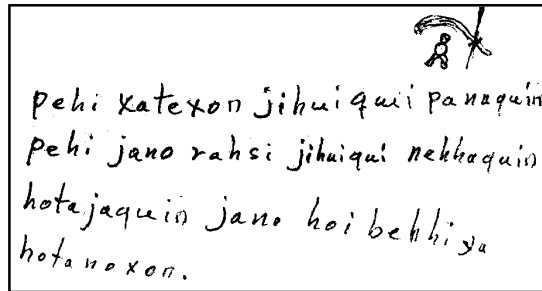 pehi xatexon jihui qui panaquin
pehi jano rahsi jihuiqui nekhaquin
hotajaquin jano hoi bekhi xa
hotanoxon.